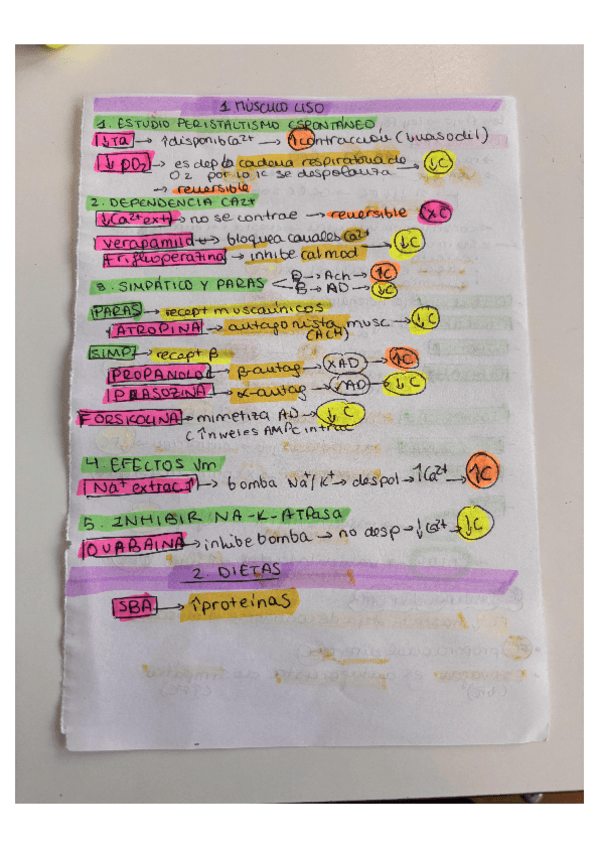 1 MÚSCULO LISO
1. ESTUDIO PERISTALTISMO ESPONTÁNEO
↓Ta → ↑disponib Ca2+ → ↑contracción (buasodil)
↓pO2 → es dep la cadena respiratoria de
O2 por lo K se despolariza → ↓C
→ reversible
2. DEPENDENCIA CA2+
↓Ca2+ ext → no se contrae → reversible XC
verapamilo → bloquea canales Ca2+ → ↓C
trifluoperatina → inhibe calmod
3. SIMPÁTICO Y PARAS → Ach → ↑C
→ AD → ↓C
PARAS → recept muscaúnicos
ATROPINA → antagonista musc → ↓C
(ACH)
SIMP → recept β
PROPANOLOL → β-antag → XAD → ↑C
PRASOZINA → α-antag → AD → ↓C
FORSKOLINA → mimetiza AD → ↓C
(↑niveles AMPc intrac
4 EFECTOS Vm
Na+ extrac ↑ → bomba Na+/K+ → despol → ↑Ca2+ → ↑C
5. INHIBIR NA-K-ATPasa
OUABAINA → inhibe bomba → no desp → ↓Ca2+ → ↓C
2. DIETAS
SBA → ↑proteínas